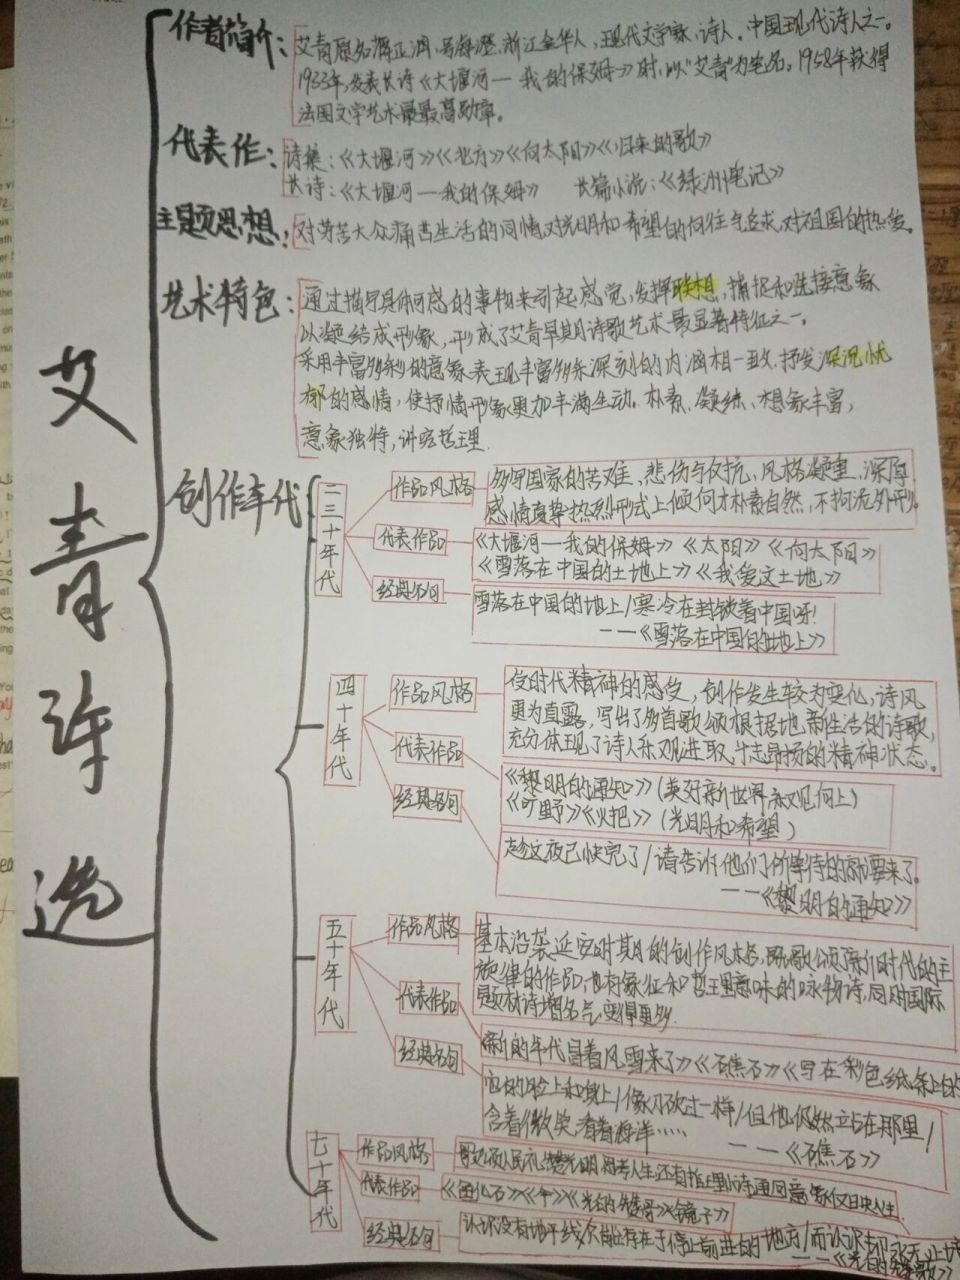 艾青诗选
作者简介：
艾青原名蒋正涵,号海澄,浙江金华人,现代文学家,诗人。中国现代诗人之一。
1933年,发表长诗《大堰河一我的保姆》时,以"艾青"为笔名。1958年获得
法国文学艺术最最高勋章。
代表作：
诗集：《大堰河》《北方》《向太阳》《归来的歌》
长诗：《大堰河一我的保姆》 长篇小说：《绿洲笔记》
主题思想：
对劳苦大众痛苦生活的同情,对光明和希望的向往与追求,对祖国的热爱。
艺术特色：
通过描写具体可感的事物来引起感觉,发挥联想,捕捉和选择意象
以凝结成形象,形成了艾青早期诗歌艺术最显著特征之一。
采用丰富多彩的意象表现丰富多彩深刻的内涵相一致,抒发深沉忧
郁的感情,使抒情形象更加丰满生动.朴素、凝练、想象丰富,
意象独特,讲究哲理.
创作年代
二三十年代
作品风格
多写国家的苦难、悲伤与反抗、风格凝重,深厚
感情真挚热烈形式上倾向才朴素自然,不拘泥外形。
代表作品
《大堰河一我的保姆》《太阳》《向太阳》
《雪落在中国的土地上》《我爱这土地》
经典名句
雪落在中国的地上/寒冷在封锁着中国呀!
——《雪落在中国的土地上》
四十年代
作品风格
受时代精神的感受,创作发生较为变化,诗风
更为直露,写出了多首歌颂根据地、新生活的诗歌,
充分体现了诗人乐观进取、斗志昂扬的精神状态。
代表作品
《黎明的通知》(美好新世界乐观向上)
《旷野》《火把》(光明和希望)
经典名句
趁这夜已快完了/请告诉他们/所等待的就要来了。
——《黎明的通知》
五十年代
作品风格
基本沿袭延安时期的创作风格,既歌颂新旧时代的主
旋律的作品,也有象征和哲理意味的咏物诗,同时国际
题材诗增名气,变得更多.
代表作品
《新的年代冒着风雪来了》《礁石》《写在彩色纸条上的
经典名句
它的脸上和身上/像刀砍过一样/但他仍然立在那里/
含着微笑,看着海洋……
——《礁石》
七十年代
作品风格
歌颂人民礼赞光明,思考人生,还有哲理小诗通图意象仅映人生.
代表作品
《鱼化石》《伞》《光的赞歌》《镜子》
经典名句
认识没有地平线/只能存在于停止前进的地方/而认识却永无止境
——《光的赞歌》